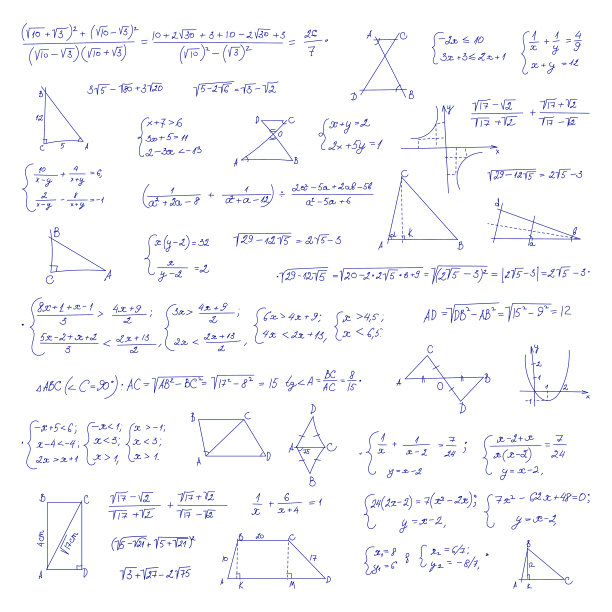 (√10+√3)²+(√10-√3)² / (√10-√3)(√10+√3) = 10+2√30+3+10-2√30+3 / (√10)²-(√3)² = 26/7.
A C
D B
{-2x ≤ 10
3x+3 ≤ 2x+1
{1/x + 1/y = 4/9
x+y=12
B
12
C 5 A
3√5-√80+3√20
√5-2√6 = √3-√2
{x+7>6
3x+5=11
2-3x<-13
D C
O
A B
{x+y=2
2x+5y=1
y
x
√17-√2 / √17+√2 + √17+√2 / √17-√2
{10/x-y + 4/x+y = 6,
2/x-y - 8/x+y = -1
(1/a²+2a-8 + 1/a²+a-12) ÷
a²-5a+6
C
A K B
√29-12√5 = 2√5-3
d
a b
B
C A
{x(y-2)=32
x/y-2 = 2
√29-12√5 = 2√5-3
·√29-12√5 = √20-2·2√5·3+9 = √(2√5-3)² = |2√5-3| = 2√5-3·
·{8x+1+x-1/3 > 4x+9/2;
5x-2+x+2/3 < 2x+13/2,
{3x> 4x+9/2;
2x< 2x+13/2,
{6x>4x+9;
4x<2x+13,
{x>4,5;
x<6,5
AD=√DB²-AB²=√15²-9²=12
△ABC(∠C=90°)· AC=√AB²-BC²=√17²-8²=15 tg<A=BC/AC=8/15·
C
A B
O
D
y
2
1
-1
1 2
x
·{-x+5<6;
x-4<-4;
2x>x+1
{-x<1;
x<3;
x>1,
{x>-1;
x<3;
x>1.
B C
A D
D
A 25 C
B
·{1/x + 1/x-2 = 7/24;
y=x-2
{x-2+x/x(x-2) = 7/24
y=x-2,
B C
4cm
√17cm
A D
√17-√2 / √17+√2 + √17+√2 / √17-√2
1/x + 6/x+4 = 1
{24(2x-2)=7(x²-2x);
y=x-2,
{7x²-62x+48=0;
y=x-2,
(√5-√21+√5+√21)²
√3+√27-2√75
B 20 C
10 17
A K M D
{x₁=8
y₁=6
&
{x₂=6/7;
y₂=-8/7,
B
12
A K C